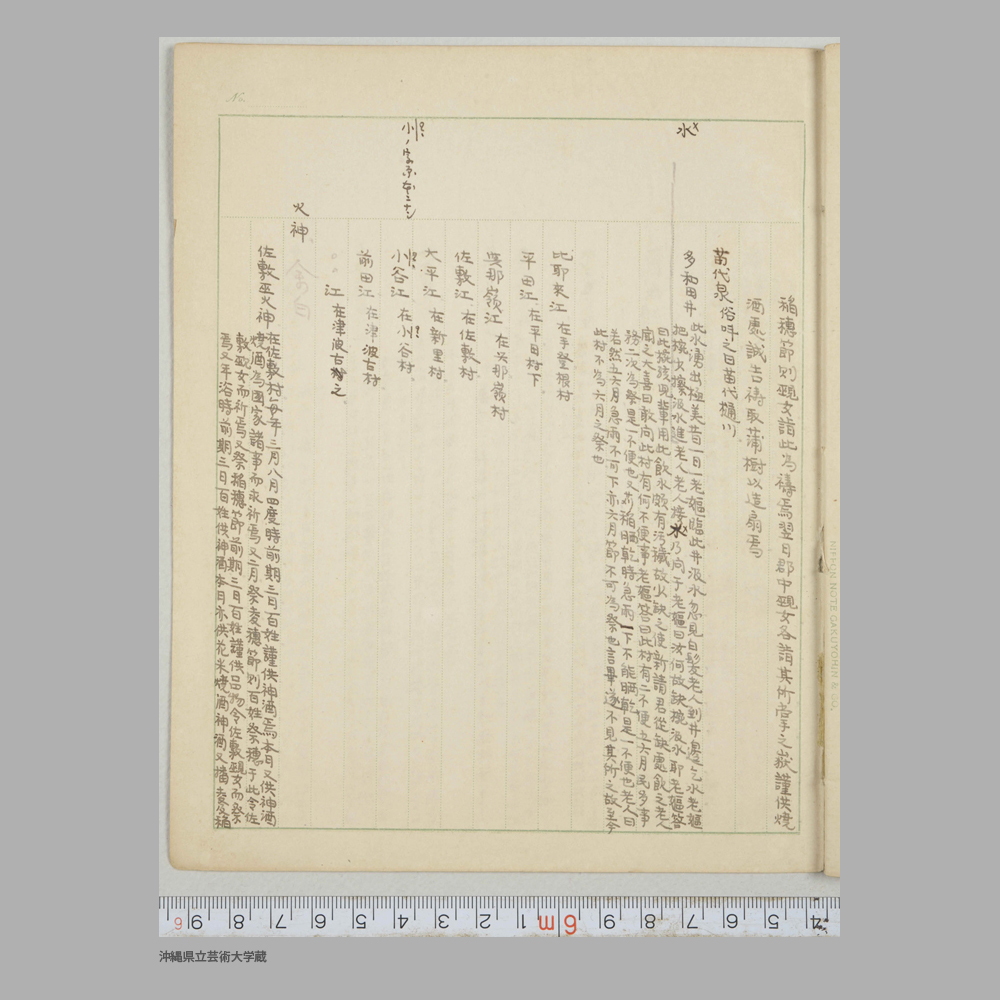 稲穂節則覡女詣此為祷焉翌日郡中覡女各詣其所掌之嶽謹供焼
酒處誠吉祷取蒲樹以造扇焉
苗代泉 俗呼之曰苗代樋川
水
多和田井
此水湧出極美昔一日一老嫗臨此井汲水忽見白髪老人到井邊乞水老嫗
把椀少擦汲水進老人老人接水乃向于老嫗曰汝何故缺椀汲水耶老嫗答
曰此椀該児輩用此飲水頗有汚穢故少缺之使新請君從缺處飲之老人
聞之大喜曰敢向此村有何不便事老嫗答曰此村有二不便五六月民多事
務二次為祭是一不便也又苅稲晒乾時急雨一下不能晒乾是一不便也老人曰
若然五六月急雨不可下亦六月節不可為祭也言畢遂不見其所之故至今
此村不為六月之祭也
比耶来江 在手登根村
平田江 在平田村下
與那嶺江 在與那嶺村
佐敷江 在佐敷村
大平江 在新里村
小谷江 在小谷村
小ノ字原本ニナシ
前田江 在津波古村
〃〃江 在津波古村之
火神
佐敷巫火神
在佐敷村毎年三月八月四度時前期三日百姓謹供神酒焉本日又供神酒
焼酒為国家諸事而求祈焉又二月祭麦穂節則百姓祭穂于此令佐
敷覡女而祈焉又祭稲穂節前期三日百姓謹供品物令佐敷覡女而祭
焉又年浴時前期三日百姓供神酒本日亦供花米焼酒神酒又播麦稲
No.
NIPPON NOTE GAKUYOHIN & CO.
沖縄県立芸術大学蔵